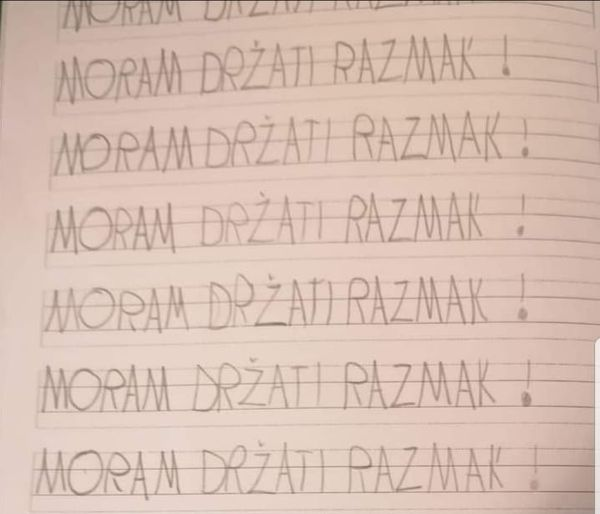 MORAM DRŽATI RAZMAK
MORAM DRŽATI RAZMAK !
MORAM DRŽATI RAZMAK !
MORAM DRŽATI RAZMAK !
MORAM DRŽATI RAZMAK !
MORAM DRŽATI RAZMAK !
MORAM DRŽATI RAZMAK !